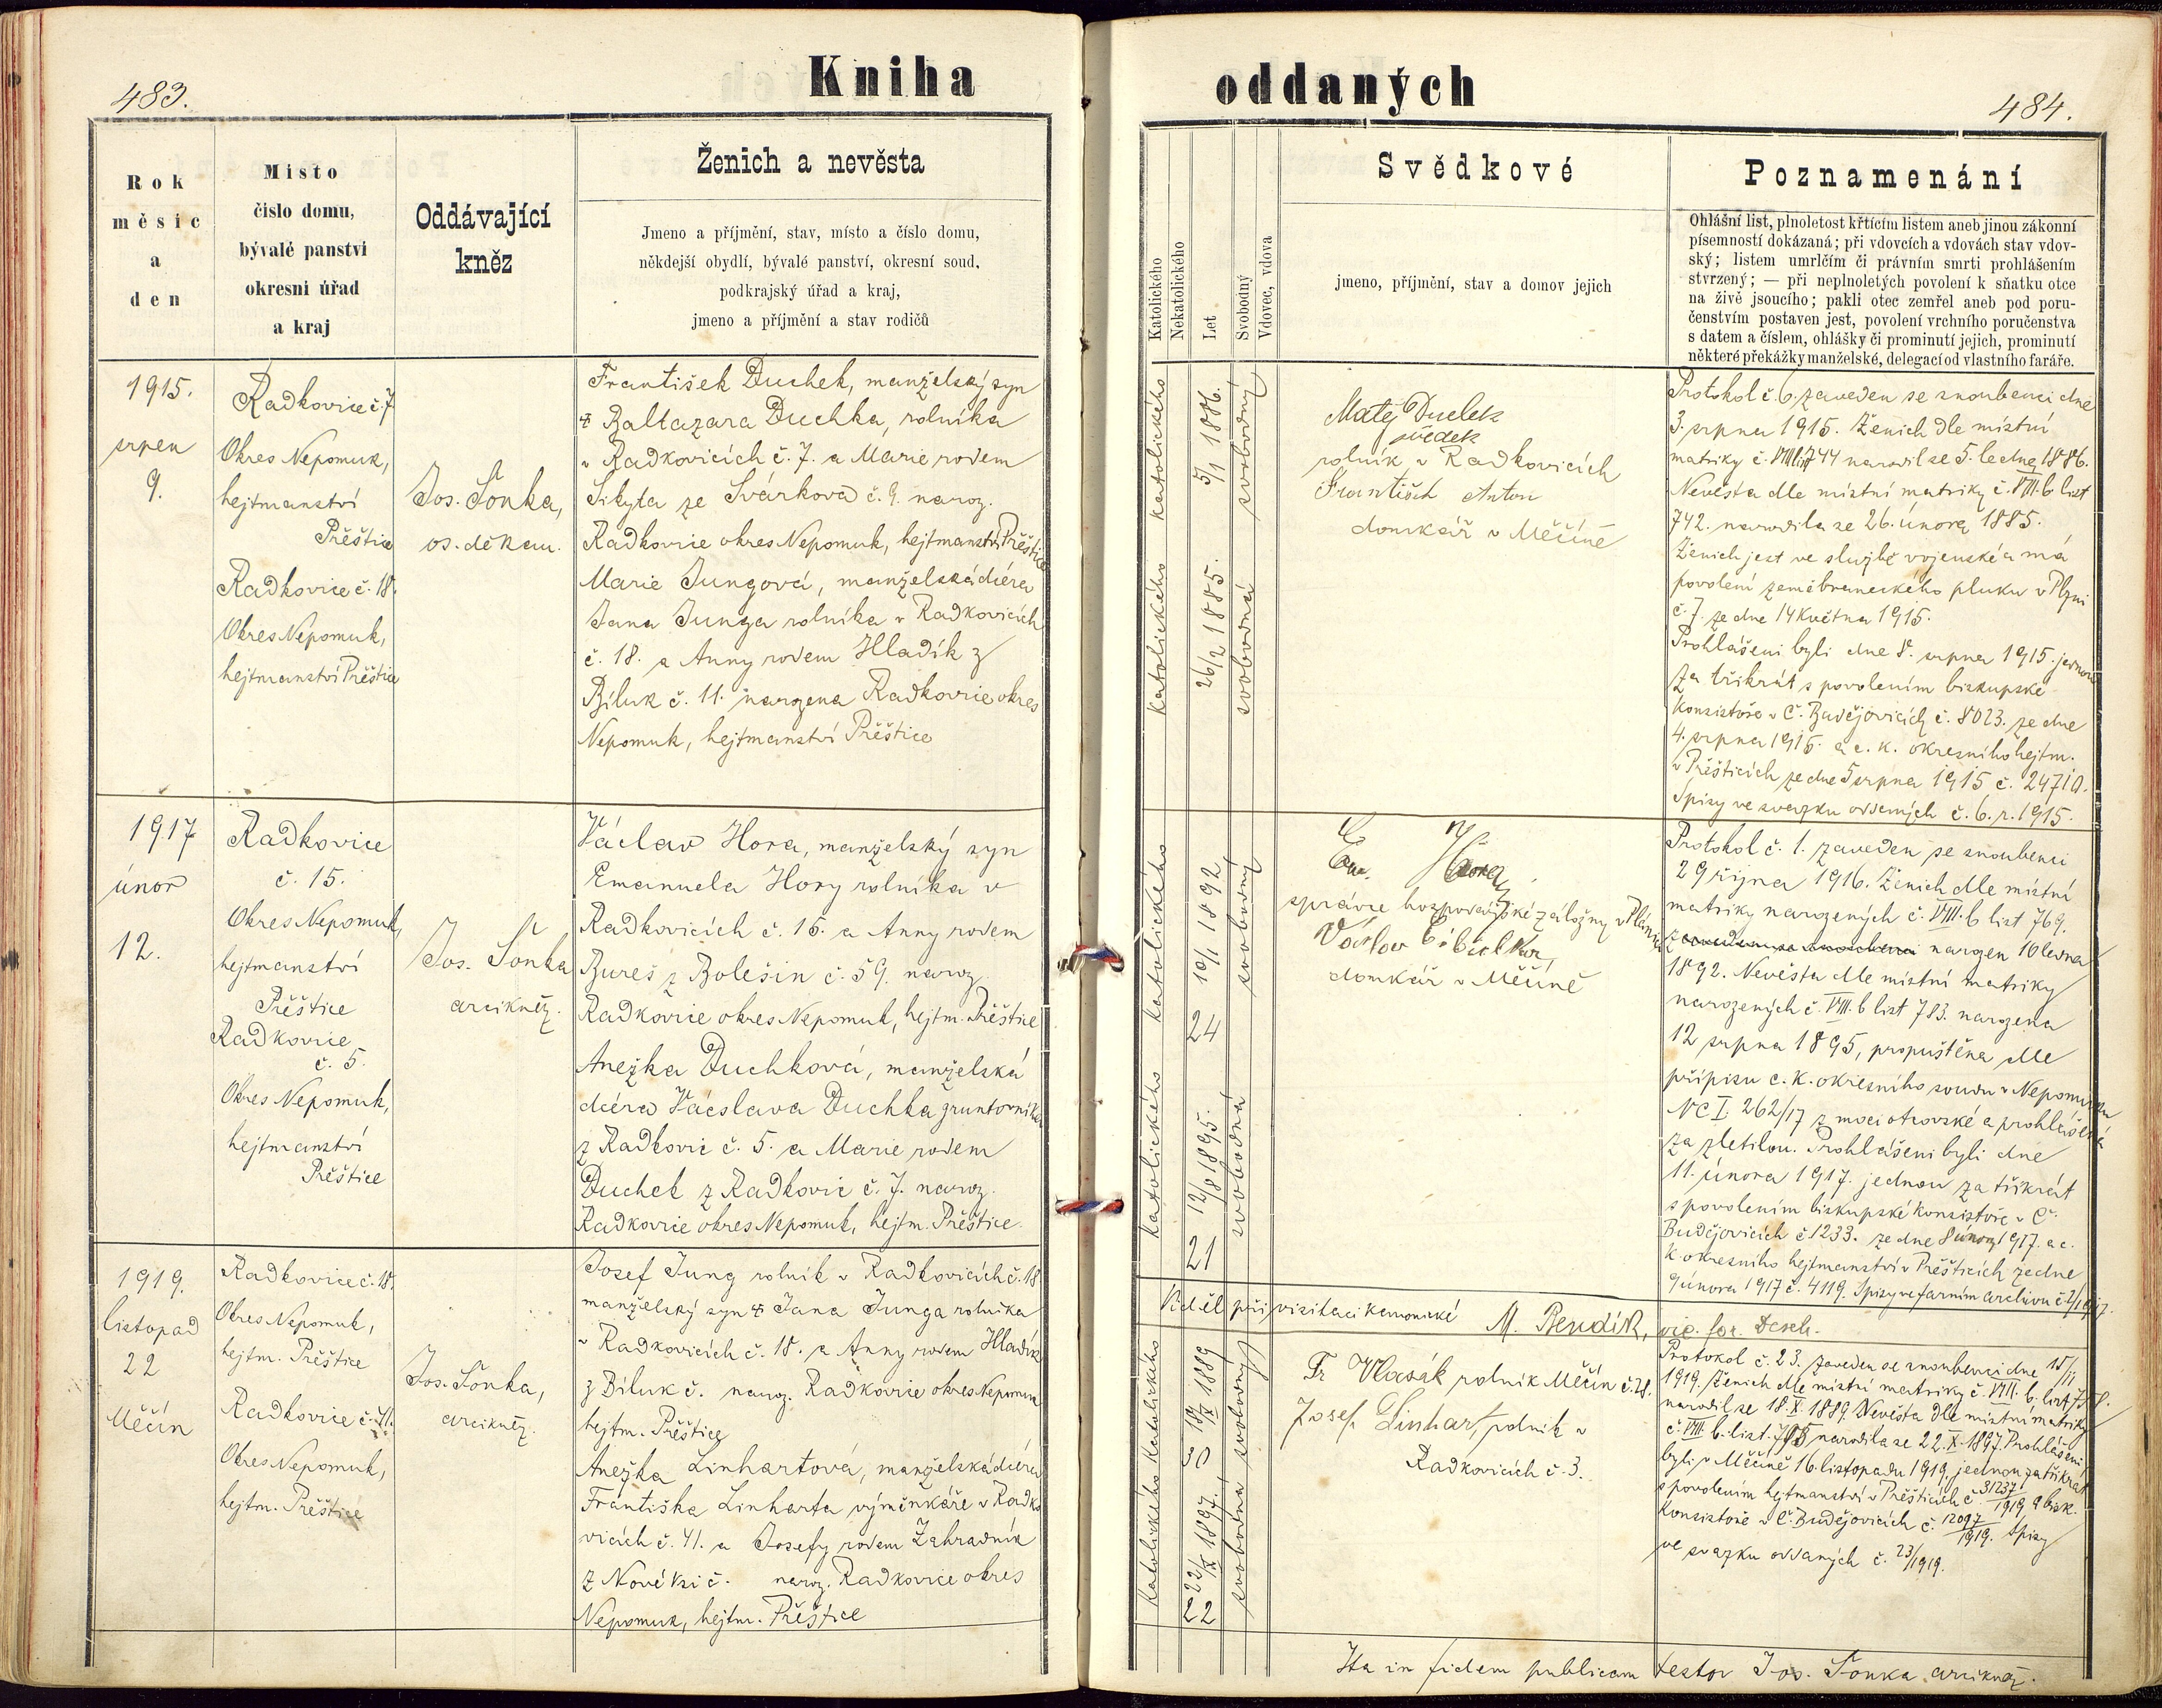 483.
Kniha
Rok
měsíc
a
den
Místo
číslo domu,
bývalé panství
okresní úřad
a kraj
Oddávající
kněz
Ženich a nevěsta
Jmeno a příjmění, stav, místo a číslo domu,
někdejší obydlí, bývalé panství, okresní soud,
podkrajský úřad a kraj,
jmeno a příjmění a stav rodičů
1915.
srpen
9.
Radkovice č. 7
Okres Nepomuk,
hejtmanství
Přěštice
Radkovice č. 18.
Okres Nepomuk,
hejtmanství Přěštice
Jos. Šonka,
os. děkan.
František Duchek, manželský syn
Baltazara Duchka, rolníka
v Radkovicích č. 7. a Marie rodem
Sikyta ze Svárkova č. 9. naroz.
Radkovice okres Nepomuk, hejtmanství Přěštice
Marie Jungová, manželská dcera
Jana Junga rolníka v Radkovicích
č. 18. a Anny rodem Hladík z
Biluk č. 11. narozena Radkovice okres
Nepomuk, hejtmanství Přěštice
1917
únor
12.
Radkovice
č. 15.
Okres Nepomuk,
hejtmanství
Přěštice
Radkovice
č. 5.
Okres Nepomuk,
hejtmanství
Přěštice
Jos. Šonka
arcikněz.
Václav Hora, manželský syn
Emanuela Hory rolníka v
Radkovicích č. 15. a Anny rodem
Bureš z Bolešin č. 59. naroz.
Radkovice okres Nepomuk, hejtm. Přěštice
Anežka Duchková, manželská
dcera Václava Duchka gruntovníka
z Radkovic č. 5. a Marie rodem
Duchek z Radkovic č. 7. naroz.
Radkovice okres Nepomuk, hejtm. Přěštice.
1919.
listopad
22
Měčín
Radkovice č. 18.
Okres Nepomuk,
hejtm. Přěštice
Radkovice č. 41.
Okres Nepomuk,
hejtm. Přěštice
Jos. Šonka,
arcikněz.
Josef Jung rolník v Radkovicích č. 18
manželský syn Jana Junga rolníka
v Radkovicích č. 18. a Anny rodem Hladík
z Biluk č. naroz. Radkovice okres Nepomuk
hejtm. Přěštice
Anežka Linhartová, manželská dcera
Františka Linharta výměnkáře v Radko
vicích č. 41. a Josefy rodem Zahradník
z Nové Vsi č. naroz. Radkovice okres
Nepomuk, hejtm. Přěštice
oddaných
484.
Katolického
Nekatolického
Let
Svobodný
Vdovec, vdova
Svědkové
jmeno, příjmění, stav a domov jejich
Poznamenání
Ohlášní list, plnoletost křtícím listem aneb jinou zákonní
písemností dokázaná; při vdovcích a vdovách stav vdov-
ský; listem umrlčím či právním smrti prohlášením
stvrzený; — při neplnoletých povolení k sňatku otce
na živě jsoucího; pakli otec zemřel aneb pod poru-
čenstvím postaven jest, povolení vrchního poručenstva
s datem a číslem, ohlášky či prominutí jejich, prominutí
některé překážky manželské, delegací od vlastního faráře.
katolického
5/1 1886.
svobodný
katolického
26/2 1885.
svobodná
Matěj Duchek
svědek
rolník v Radkovicích
František Anton
domkář v Měčíně
Protokol č. 6. zaveden se snoubenci dne
3. srpna 1915. Ženich dle místní
matriky č. VIII list 744 narodil se 5. ledna 1886.
Nevěsta dle místní matriky č. VIII. b list
742. narodila se 26. února 1885.
Ženich jest ve službě vojenské a má
povolení zeměbraneckého pluku v Plzni
č. 7. ze dne 14 května 1915.
Prohlášeni byli dne 8. srpna 1915. jednou
za třikrát s povolením biskupské
Konsistoře v Č. Budějovicích č. 8023. ze dne
4. srpna 1915. a c. k. okresního hejtm.
v Přěšticích ze dne 5 srpna 1915 č. 24710.
Spisy ve svazku oddaných č. 6. r. 1915.
katolického
10/1 1892
24
svobodný
katolického
12/8 1895.
21
svobodná
Em. Hora,
správce hospodářské záložny v Plánici
Václav
domkář v Měčíně
Protokol č. 1. zaveden se snoubenci
29 října 1916. Ženich dle místní
matriky narozených č. VIII. b list 769.
zaveden se snoubenci narozen 10 ledna
1892. Nevěsta dle místní matriky
narozených č. VIII. b list 783. narozena
12 srpna 1895, propuštěna dle
přípisu c. k. okresního soudu v Nepomuku
NC I. 262/17 z moci otcovské a prohlášená
za zletilou. Prohlášeni byli dne
11. února 1917. jednou za třikrát
s povolením biskupské Konsistoře v Č.
Budějovicích č 1233. ze dne 8 února 1917. a c.
k. okresního hejtmanství v Přěšticích ze dne
9 února 1917 č. 4119. Spisy ve farním archivu č 1/1917.
Viděl při visitaci kanonické M. Bendík, vic. for. Desch.
Katolického
18/X 1889
30
svobodný
katolického
22/X 1897.
22
svobodná
Fr Vlasák rolník Měčín č. 28.
Josef Linhart, rolník v
Radkovicích č. 3.
Protokol č. 23. zaveden se snoubenci dne 15/11
1919. Ženich dle místní matriky č. VIII. b. list 758.
narodil se 18. X. 1889. Nevěsta dle místní matriky
č. VIII. b. list. 785 narodila se 22. X. 1897. Prohlášeni
byli v Měčíně 16. listopadu 1919. jednou za třikrát
s povolením hejtmanství v Přěšticích č. 31237/1919 a bisk.
Konsistoře v Č. Budějovicích č. 12097/1919. Spisy
ve svazku oddaných č. 23/1919.
Ita in fidem publicam testor Jos. Šonka arcikněz.